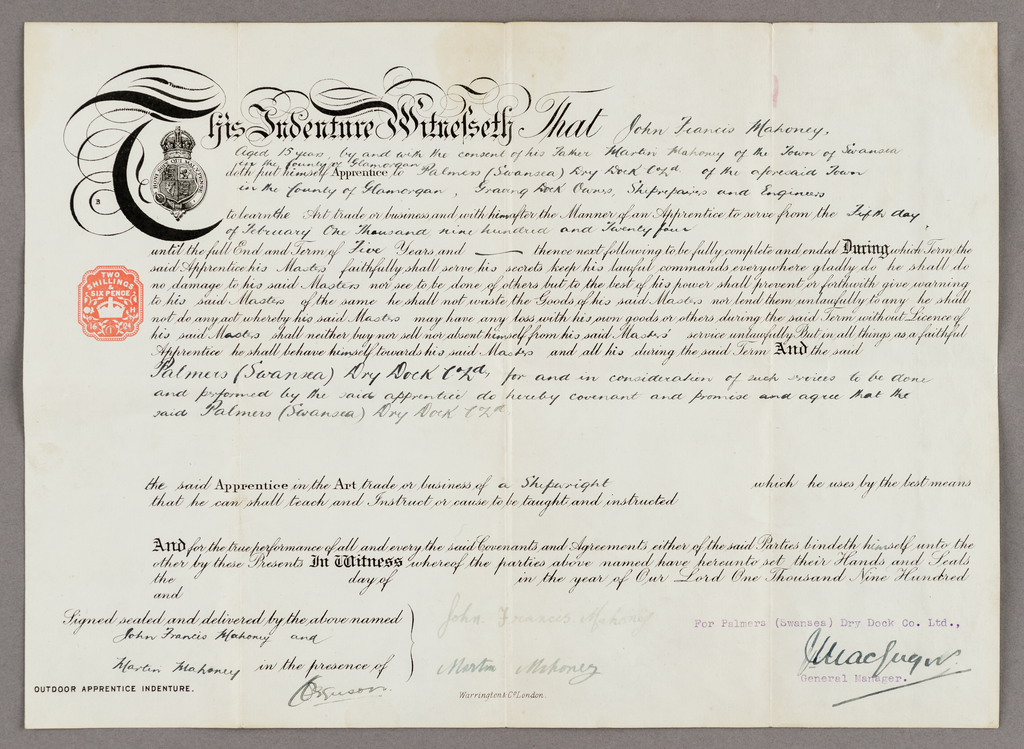 This Indenture Witnesseth That John Francis Mahoney,
Aged 15 years, by and with the consent of his Father Martin Mahoney of the Town of Swansea
in the County of Glamorgan
doth put himself Apprentice to Palmers (Swansea) Dry Dock Co Ld of the aforesaid Town
in the County of Glamorgan, Graving Dock Owners, Shiprepairers and Engineers
to learn the Art trade or business and with him after the Manner of an Apprentice to serve from the Fifth day
of February One Thousand nine hundred and Twenty four
until the full End and Term of Five Years and — thence next following to be fully complete and ended During which Term the
said Apprentice his Masters faithfully shall serve his secrets keep his lawful commands everywhere gladly do he shall do
no damage to his said Masters nor see to be done of others but to the best of his power shall prevent or forthwith give warning
to his said Masters of the same he shall not waste the Goods of his said Masters nor lend them unlawfully to any he shall
not do any act whereby his said Masters may have any loss with his own goods or others during the said Term without Licence of
his said Masters shall neither buy nor sell nor absent himself from his said Masters' service unlawfully But in all things as a faithful
Apprentice he shall behave himself towards his said Masters and all his during the said Term And the said
TWO
SHILLINGS
&
SIX PENCE
Palmers (Swansea) Dry Dock Co Ld, for and in consideration of such services to be done
and performed by the said apprentice do hereby covenant and promise and agree that the
said Palmers (Swansea) Dry Dock Co Ld
the said Apprentice in the Art trade or business of a Shipwright which he uses by the best means
that he can shall teach and Instruct or cause to be taught and instructed
And for the true performance of all and every the said Covenants and Agreements either of the said Parties bindeth himself unto the
other by these Presents In Witness whereof the parties above named have hereunto set their Hands and Seals
the day of in the year of Our Lord One Thousand Nine Hundred
and
Signed sealed and delivered by the above named
John Francis Mahoney and
Martin Mahoney in the presence of
John Francis Mahoney
Martin Mahoney
For Palmers (Swansea) Dry Dock Co. Ltd.,
General Manager.
OUTDOOR APPRENTICE INDENTURE.
Warrington & Co London.